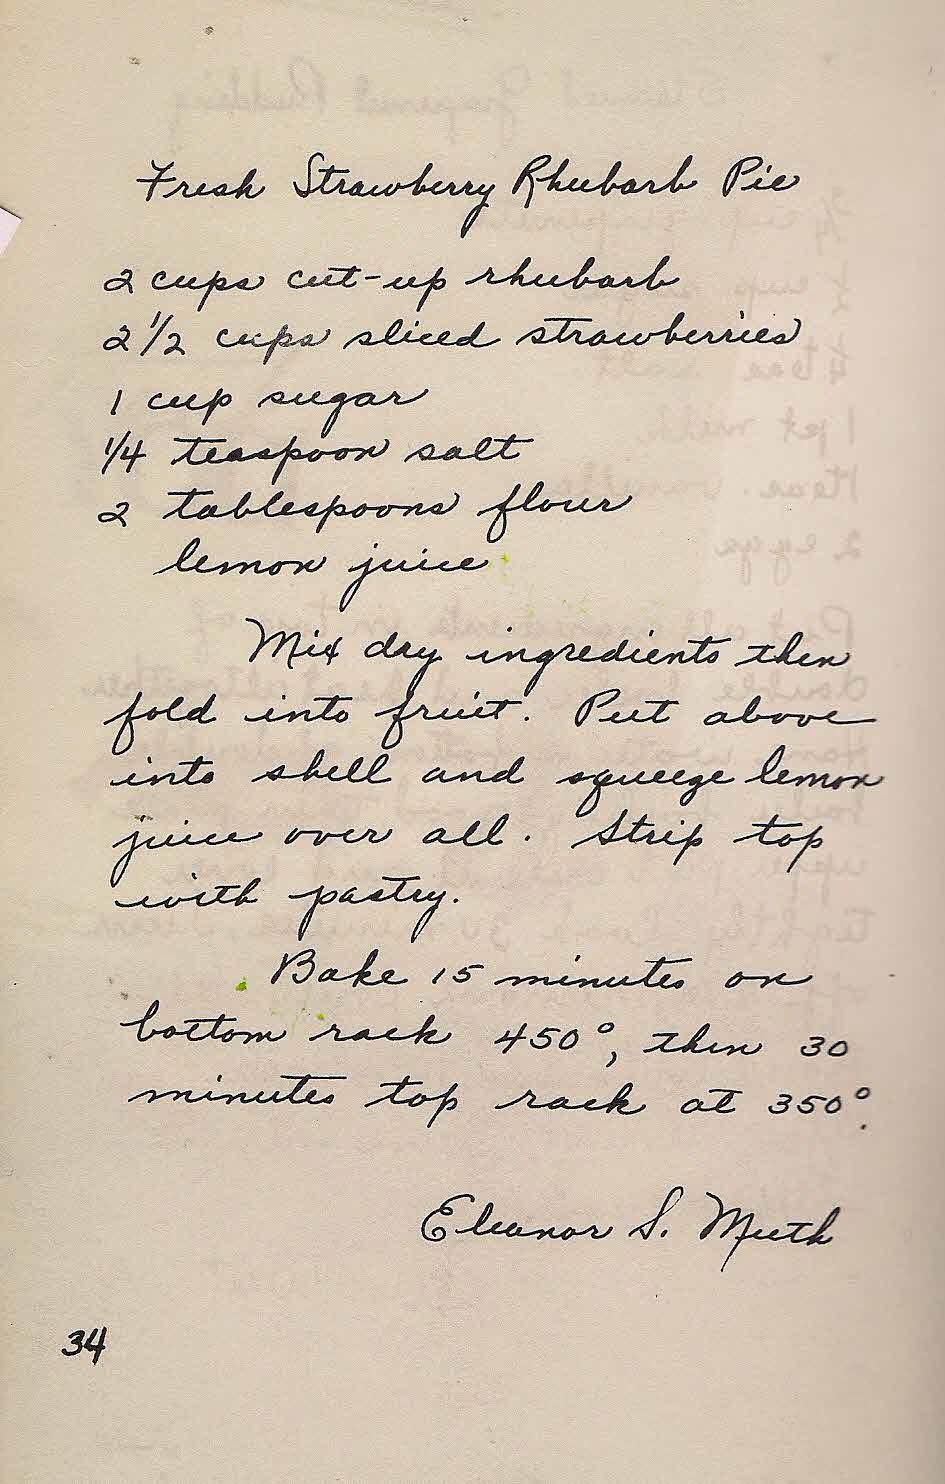 Fresh Strawberry Rhubarb Pie
2 cups cut-up rhubarb
2 1/2 cups sliced strawberries
1 cup sugar
1/4 teaspoon salt
2 tablespoons flour
lemon juice
Mix dry ingredients then
fold into fruit. Put above
into shell and squeeze lemon
juice over all. Strip top
with pastry.
Bake 15 minutes on
bottom rack 450°, then 30
minutes top rack at 350°.
Eleanor S. Muth
34